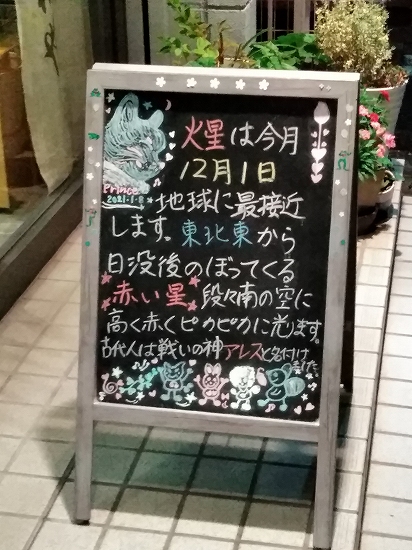 火星は今月
12月1日
Prince
2021・1・8
地球に最接近
します。東北東から
日没後のぼってくる
赤い星 段々南の空に
高く赤くピカピカに光ります。
古代人は戦いの神アレスと名付け